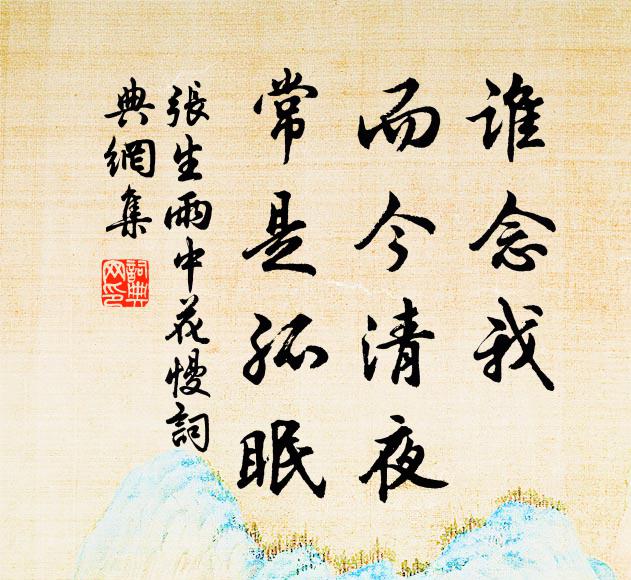 谁念我
而今清夜
常是孤眠
張生雨中花慢詞
典網集
詞典
网印